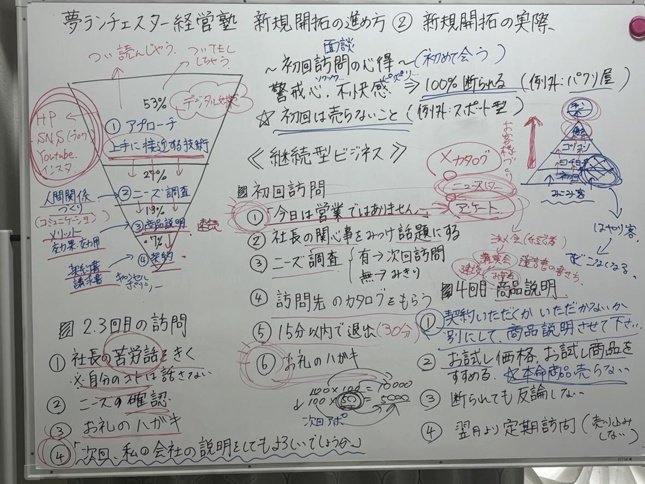 夢ランチェスター経営塾 新規開拓の進め方② 新規開拓の実際
つい読んじゃう
ついTELしちゃう
53%
デジタル
HP
SNS
Youtube
インスタ
①アプローチ
上手に接近する技術
27%
人間関係
づくり
(コミュニケーション)
②ニーズ調査
13%
メリット
③商品説明
7%
④契約
契約書
請求書
面談
〜初回訪問の心得〜(初めて会う)
警戒心、不快感⇒100%断られる(例外:パクリ屋)
☆初回は売らないこと(例外:スポット型)
《継続型ビジネス》
初回訪問
①「今日は営業ではありません」
②社長の関心事をみつけ話題にする
③ニーズ調査
有→次回訪問
無→みきり
④訪問先のカタログをもらう
⑤15分以内で退出(30分)
⑥お礼のハガキ
100×100=10000
100×50=5000
次回アポ
×カタログ
ニュースレター
アンケート
お客様づくり
2.3回目の訪問
①社長の苦労話をきく
※自分のコトは話さない
②ニーズの確認
③お礼のハガキ
④「次回、私の会社の説明をしてもよろしいでしょうか」
4回目 商品説明
①契約いただくか いただかないか
別にして、商品説明させて下さい
②お試し価格、お試し商品を
すすめる、☆本命商品売らない
③断られても反論しない
④翌月より定期訪問(売り込みしない)